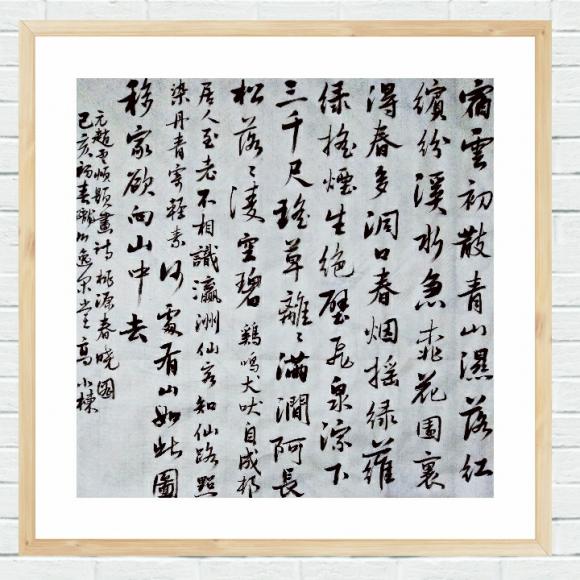 宿雲初散青山濕落紅
繽紛溪水急桃花園裏
得春多洞口春烟搖綠蘿
綠搖煙生絕壁飛泉淙下
三千尺瑤草離〻滿澗阿長
松落〻凌空碧鷄鳴犬吠自成邨
居人至老不相識瀛洲仙客知仙路點
染丹青寄輕素何處有山如此圖
移家欲向山中去
元趙孟頫題畫詩桃源春曉圖
己亥陽春於逸泉堂高小棟